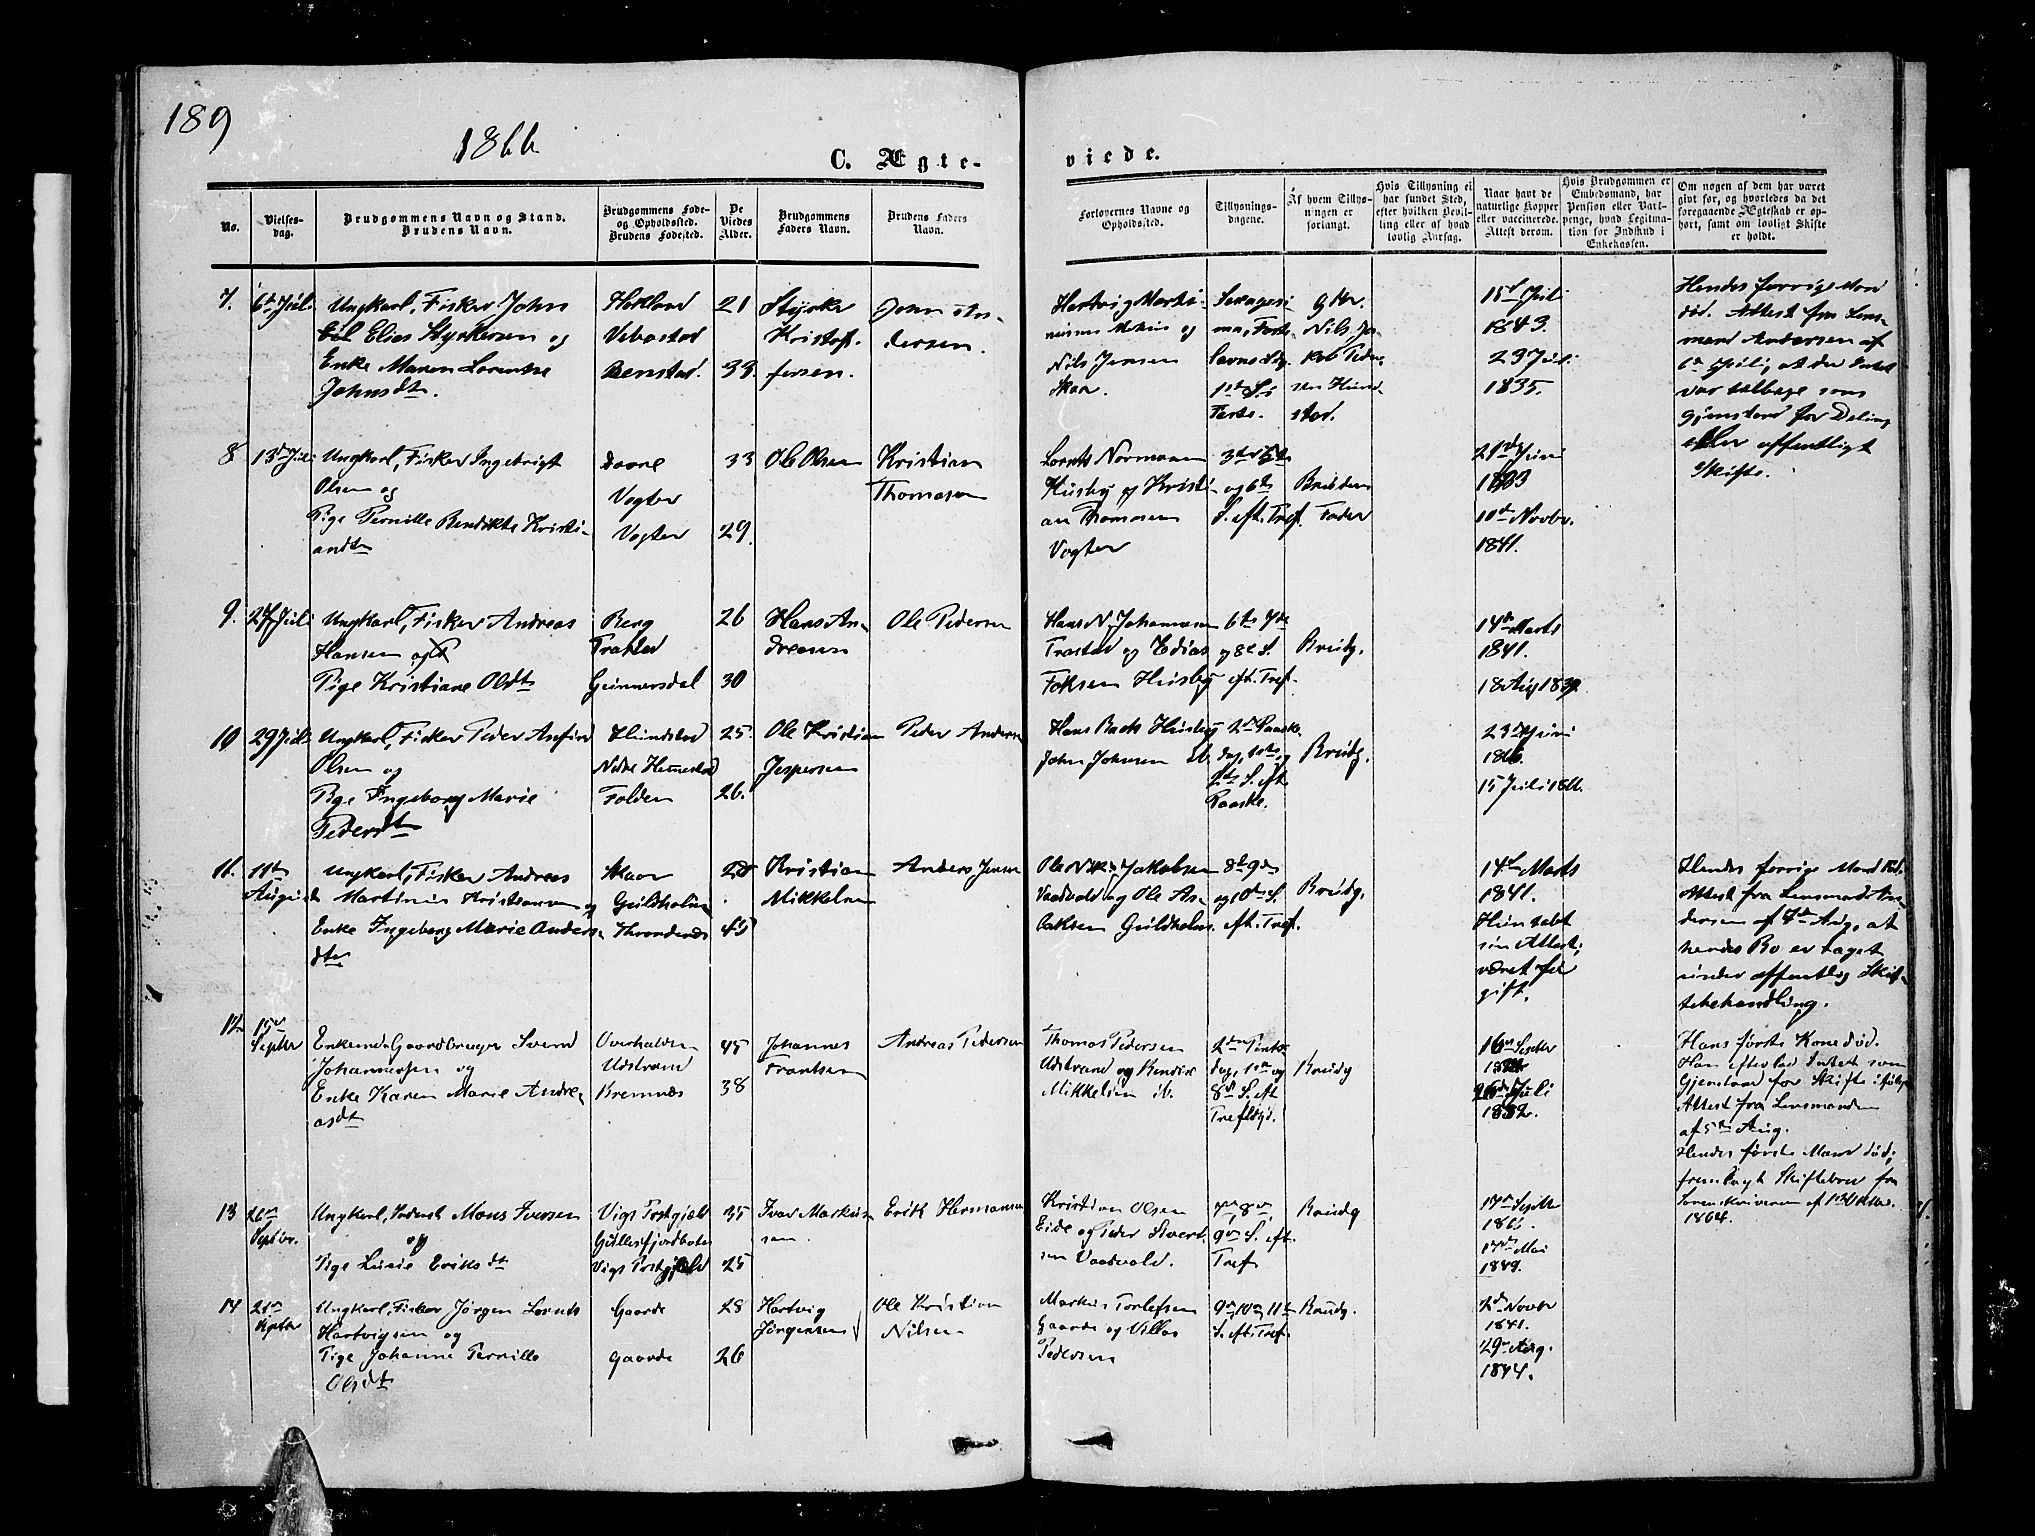 189
1866
C. Ægte-
viede.
No.
Vielses-
dag.
Brudgommens Navn og Stand.
Brudens Navn.
Brudgommens Føde-
og Opholdssted.
Brudens Fødested.
De
Viedes
Alder.
Brudgommens
Faders Navn.
Brudens Faders
Navn.
Forlovernes Navne og
Opholdssted.
Tillysnings-
dagene.
Af hvem Tillys-
ningen er
forlangt.
Hvis Tillysning ei
har fundet Sted,
efter hvilken Bevil-
ling eller af hvad
lovlig Aarsag.
Naar havt de
naturlige Kopper
eller vaccinerede.
Attest derom.
Hvis Brudgommen er
Embedsmand, har
Pension eller Vart-
penge, hvad Legitima-
tion for Indskud i
Enkekassen.
Om nogen af dem har været
givt før, og hvorledes da det
foregaaende Ægteskab er op-
hørt, samt om lovligt Skifte
er holdt.
7.
6te Juli
Ungkarl, Fisker John
Elias Styrkersen og
Enke Maren Lorentse
Johnsdt.
21
33.
Styrker
Kristof-
fersen.
John An-
dersen.
Hartvig Marti-
nussen og
Nils Jensen
Skar.
Nils Ja-
15de Juli
1843.
23 Juli
1835.
Hendes forrige Mand
død. Attest fra Lens-
mand Andersen af
6te Juli, at der Intet
var tilbage som
Gjenstand for Deling
eller offentligt
Skifte.
8
13de Juli
Ungkarl, Fisker Ingebrigt
Olsen og
Pige Pernille Bendikte Kristi-
andtr
Vogter
Vogter
33
29.
Ole Olsen
Kristian
Thomasen
Lornts Normann
Husby og Kristi-
an Thomasen
Vogter
3de 5te
og 6te
S. eft. Tref.
Brudens
Fader
21de Juni
10de Novbr.
1841.
9.
27 Juli
Ungkarl, Fisker Andreas
Hansen og
Pige Kristiane Olsdtr
Berg
Gunnersdal
26
30
Hans An-
dreasen
Ole Pedersen
Hans N. Johannesen
og Edias
Foksen Husby
6te 7de
og 8de S.
eft. Tref.
Brudg.
14de Marts
1841.
18 Aug 1839
10
29 Juli
Ungkarl, Fisker Peder Anfind
Olsen og
Pige Ingeborg Marie
Pedersdtr
Hundstad
Nedre Hemestad
Folden
25.
26.
Ole Kristian
Jespersen
Peder Andersen
Hans Bach Husby
John Johnsen ib.
2de Paaske-
dag, 1ste og
2de S. eft.
Paaske.
Brudg.
23de Juni
15 Juli
11.
11te
August
Ungkarl, Fisker Andreas
Martinus Kristiansen og
Enke Ingeborg Marie Anders-
dtr
Skaar
Guldholm
Throndenæs
45
Kristian
Mikkelsen
Anders Jensen
Jakobsen
Vaadvold og Ole Is-
aksen Guldholm.
8de 9de
og 10de S.
eft. Tref.
Brudg.
14de Marts
1841.
Hun tabt
sin Attest;
været før
gift.
Hendes forrige Mand død.
Attest fra Lensmand An-
dersen af Aug. at
hendes Bo er taget
under offentlig Skif-
tebehandling.
12.
15de
Septbr
Enkemd. Gaardbruger Svend
Johannesen og
Enke Karen Marie Andre-
asdtr
Overhalden
Udstrand
Bremnæs
45
38
Johannes
Frantsen
Andreas Pedersen
Thomas Pedersen
Udstrand og Bendix
Mikkelsen ib.
2den Pintse-
dag, 1ste og
8de S. eft.
Trefldgs.
Brudg
16de Septbr
Juli
Hans første Kone død.
Han efterlod Intet som
Gjenstand for Skifte ifølge
Attest fra Lensmanden
af 5te Aug.
Hendes første Mand død,
fremlagt Skiftebrev fra
Sorenskriveren af
1864.
13
26de
Septbr.
Ungkarl, Mons Iversen
og
Pige Lusie Eriksdtr
Vigs Prstgjæld
Gullesfjordbotn
Vigs Prstgjæld
35
25
Ivar Markus-
sen.
Erik Hermansen
Kristian Olsen
Eide og Peder Sivert-
sen Vaadvold.
7de, 8de,
9de S. eft.
Tref
Brudg
17de Septbr
17de Mai
1849.
14
Septbr
Ungkarl, Fisker, Jørgen Lornts
Hartvigsen og
Pige Johanne Pernille
Olsdtr
Gaarde
Gaarde
28
26
Hartvig
Jørgensen
Ole Kristian
Nilsen
Markus Torlefsen
Gaarde og Villas
Pedersen
9de, 10de, 11te
S. eft. Tref.
Brudg.
2de Novbr
1841.
29de Aug.
1844.